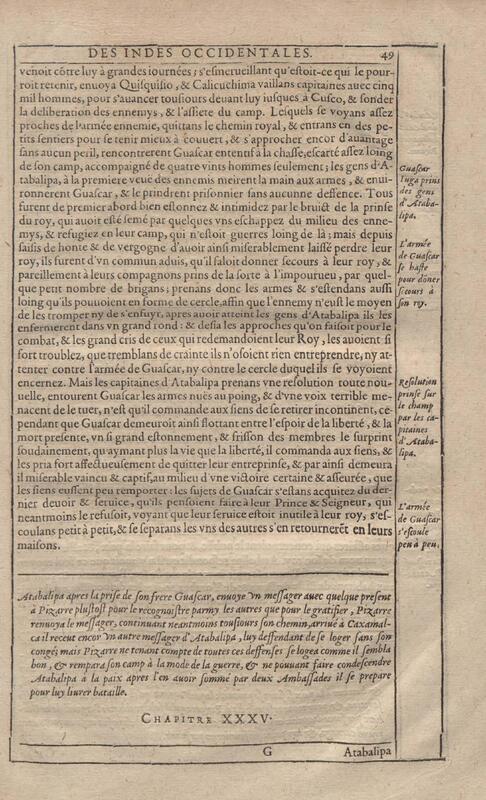 DES INDES OCCIDENTALES. 49
venoit cõtre luy à grandes iournées; s'esmerueillant qu'estoit-ce qui le pour-
roit retenir, enuoya Quisquisio, & Calicuchima vaillans capitaines auec cinq
mil hommes, pour s'auancer tousiours deuant luy iusques à Cusco, & sonder
la deliberation des ennemys, & l'assiete du camp. Lesquels se voyans assez
proches de l'armée ennemie, quittans le chemin royal, & entrans en des pe-
tits sentiers pour se tenir mieux à couuert, & s'approcher encor d'auantage
sans aucun peril, rencontrerent Guascar ententif à la chasse, escarté assez loing
de son camp, accompagné de quatre vints hommes seulement; les gens d'A-
tabalipa, à la premiere veuë des ennemis meirent la main aux armes, & enui-
ronnerent Guascar, & le prindrent prisonnier sans aucunne deffence. Tous
furent de premier abord bien estonnez & intimidez par le bruict de la prinse
du roy, qui auoit esté semé par quelques vns eschappez du milieu des enne-
mys, & refugiez en leur camp, qui n'estoit guerres loing de là; mais depuis
saisis de honte & de vergogne d'auoir ainsi miserablement laissé perdre leur
roy, ils furent d'vn commun aduis, qu'il faloit donner secours à leur roy; &
pareillement à leurs compagnons prins de la sorte à l'impourueu, par quel-
que petit nombre de brigans; prenans donc les armes & s'estendans aussi
loing qu'ils pouuoient en forme de cercle, affin que l'ennemy n'eust le moyen
de les tromper ny de s'enfuyr, apres auoir atteint les gens d'Atabalipa ils les
enfermerent dans vn grand rond: & desia les approches qu'on faisoit pour le
combat, & les grand cris de ceux qui redemandoient leur Roy, les auoient si
fort troublez, que tremblans de crainte ils n'osoient rien entreprendre, ny at-
tenter contre l'armée de Guascar, ny contre le cercle duquel ils se voyoient
encernez. Mais les capitaines d'Atabalipa prenans vne resolution toute nou-
uelle, entourent Guascar les armes nuës au poing, & d'vne voix terrible me-
nacent de le tuer, n'est qu'il commande aux siens de se retirer incontinent, ce-
pendant que Guascar demeuroit ainsi flottant entre l'espoir de la liberté, & la
mort presente, vn si grand estonnement, & frisson des membres le surprint
soudainement, qu'aymant plus la vie que la liberté, il commanda aux siens, &
les pria fort affectueusement de quitter leur entreprinse, & par ainsi demeura
il miserable vaincu & captif, au milieu d'vne victoire certaine & asseurée, que
les siens eussent peu remporter: les sujets de Guascar s'estans acquitez du der-
nier deuoir & seruice, qu'ils pensoient faire à leur Prince & Seigneur, qui
neantmoins le refusoit, voyant que leur seruice estoit inutile à leur roy, s'es-
coulans petit à petit, & se separans les vns des autres s'en retournerẽt en leurs
maisons.
Guascar
Inga prins
des gens
d'Ataba-
lipa.
L'armée
de Guascar
se haste
pour dõner
secours à
son roy.
Resolution
prinse sur
le champ
par les ca-
pitaines
d'Ataba-
lipa.
L'armée
de Guascar
s'escoule
peu à peu.
Atabalipa apres la prise de son frere Guascar, enuoye vn messager auec quelque present
à Pizarre plustost pour le recognoistre parmy les autres que pour le gratifier, Pizarre
renuoya le messager, continuant neantmoins tousiours son chemin, arriue à Caxamal-
ca il receut encor vn autre messager d'Atabalipa, luy deffendant de se loger sans son
congé; mais Pizarre ne tenant compte de toutes ces deffenses se logea comme il sembla
bon, & rempara son camp à la mode de la guerre, & ne pouuant faire condescendre
Atabalipa à la paix apres l'en auoir sommé par deux Ambassades il se prepare
pour luy liurer bataille.
CHAPITRE XXXV.
G Atabalipa